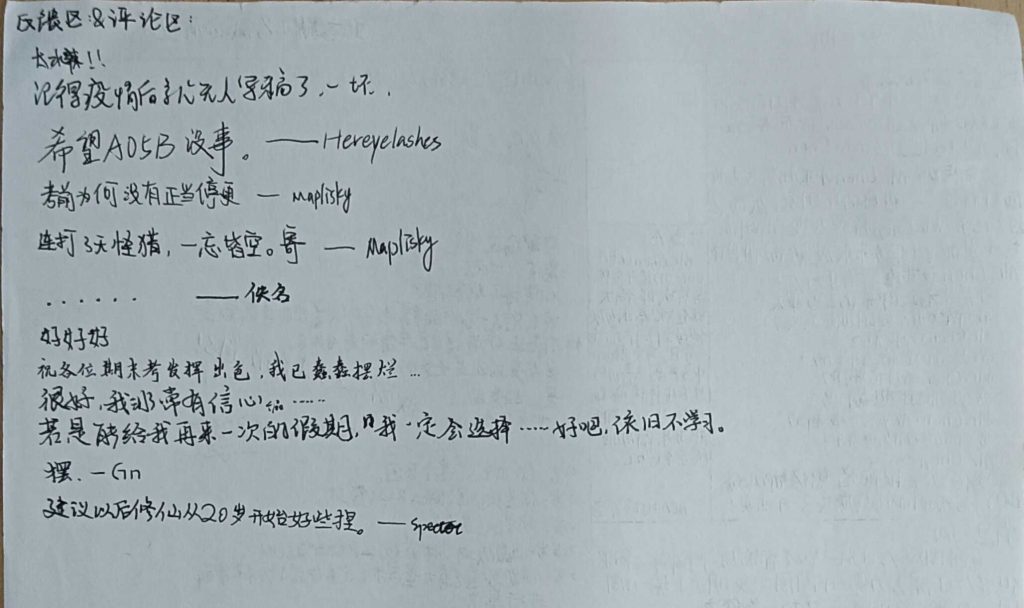 反馈区&评论区:
太水辣!!
记得疫情后就无人写稿了,一坏.
希望A05B没事。——Hereyelashes
考前为何没有正当停更 — Maplisky
连打3天怪猎,一忘皆空。寄 — Maplisky
...... ——佚名
好好好
祝各位期末考发挥出色,我已蠢蠢摆烂...
很好,我非常有信心......
若是能给我再来一次的假期,我一定会选择......好吧,依旧不学习。
摆. —Gn
建议以后修仙从20岁开始好些捏。——Specter